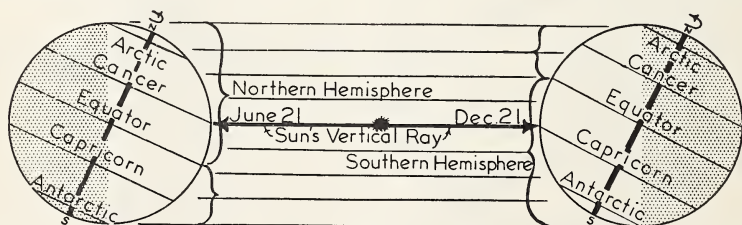 N
Arctic
Cancer
Equator
Capricorn
Antarctic
S
Northern Hemisphere
June 21
Dec. 21
Sun's Vertical Ray
Southern Hemisphere
N
Arctic
Cancer
Equator
Capricorn
Antarctic
S